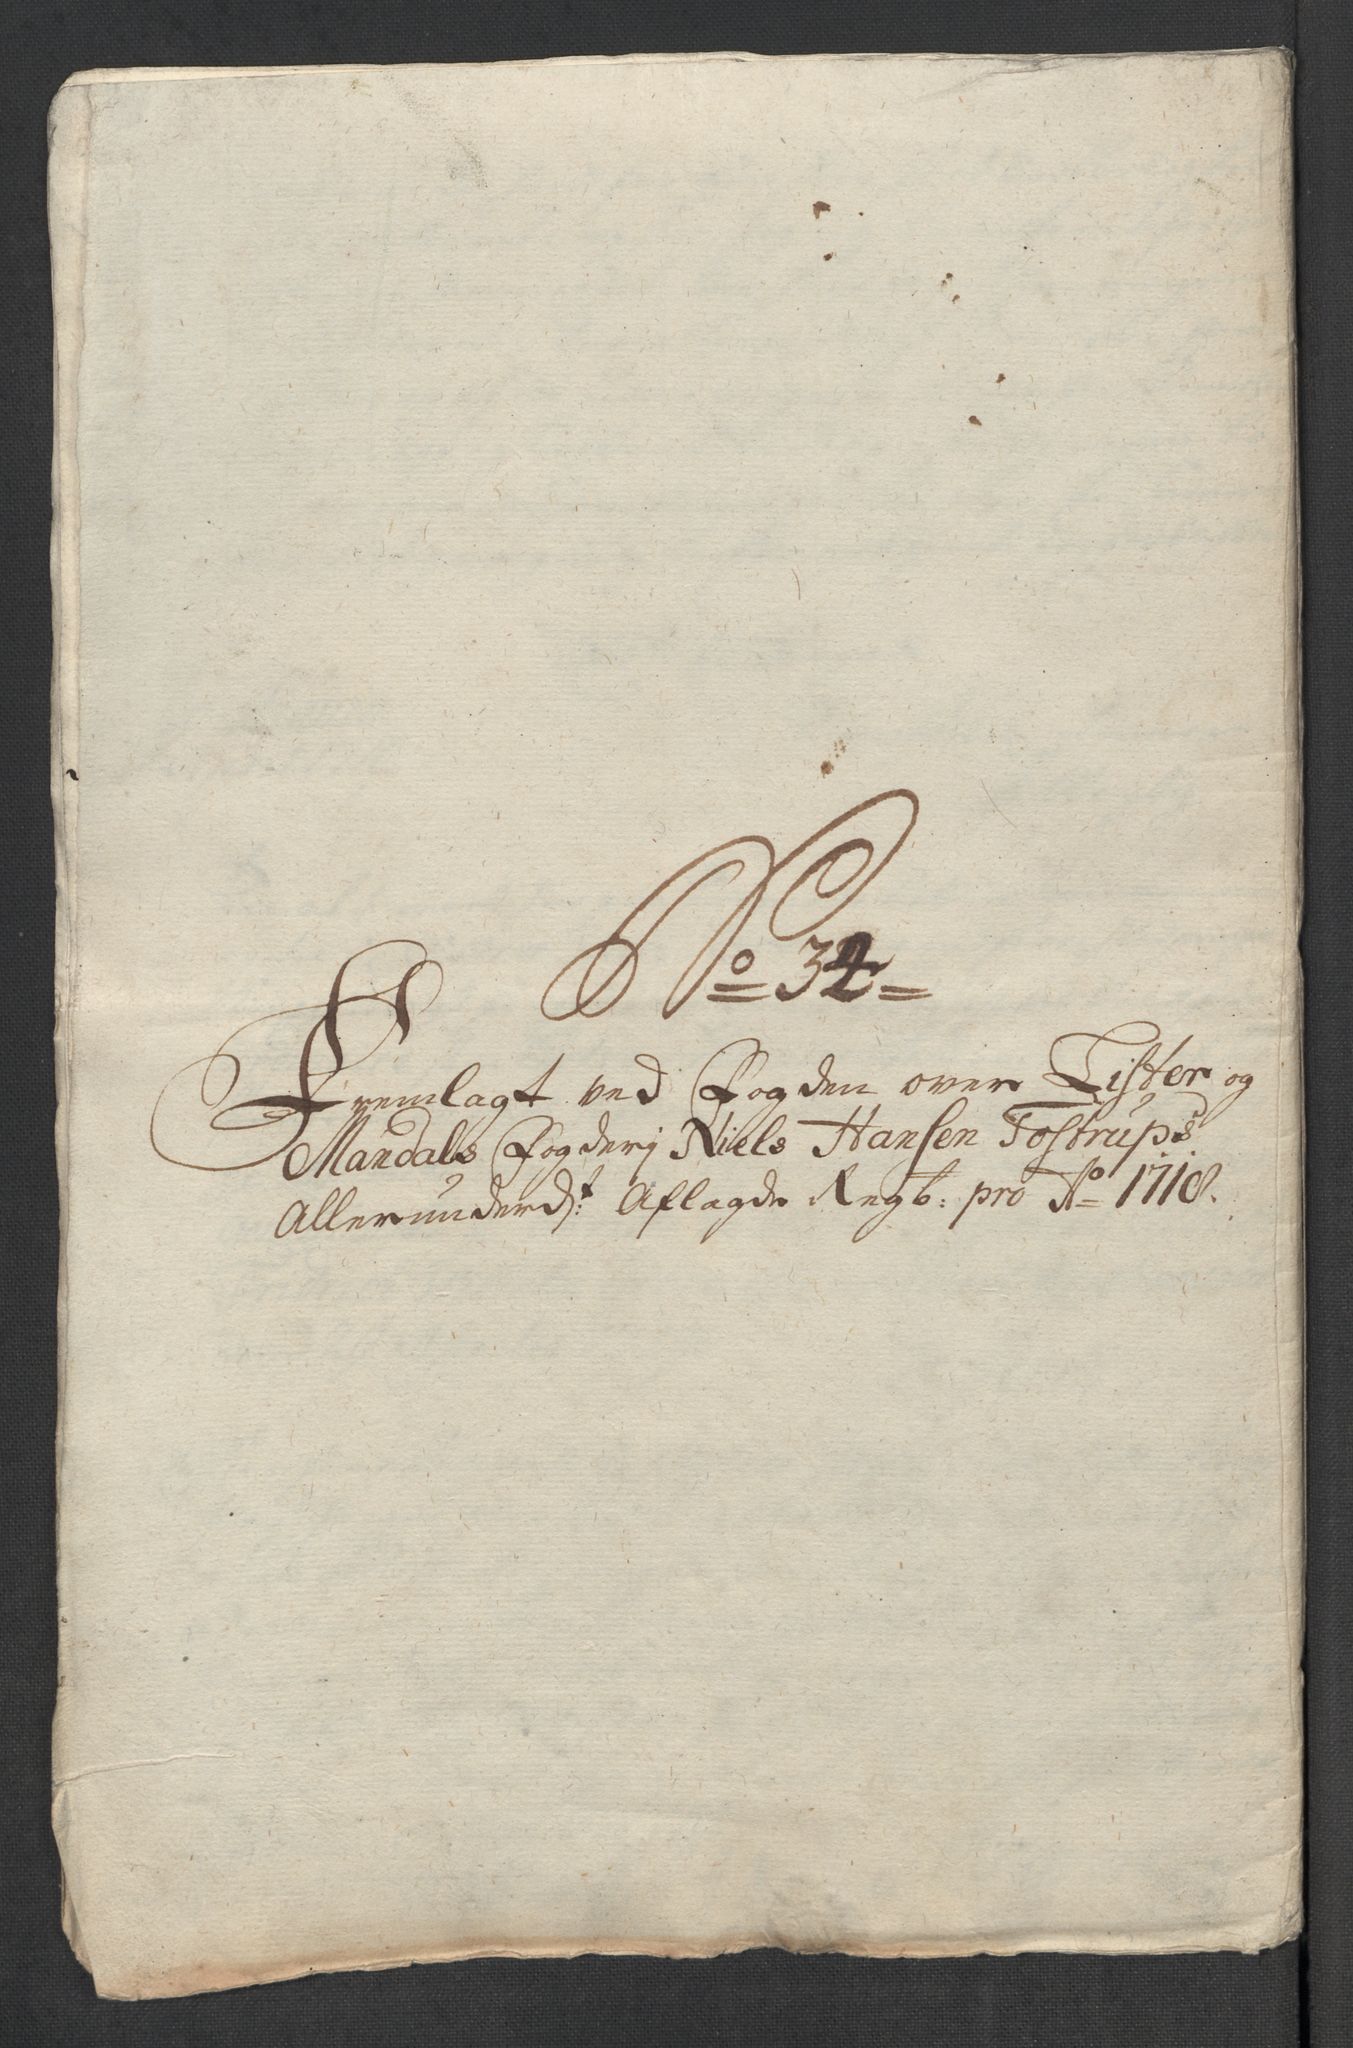 No 32
Fremlagt ved Fogden over Lister og
Mandals Fogderj Niels Hansen Tostrups
Allerunderd:t Aflagde Regb: pro Ao 1718.